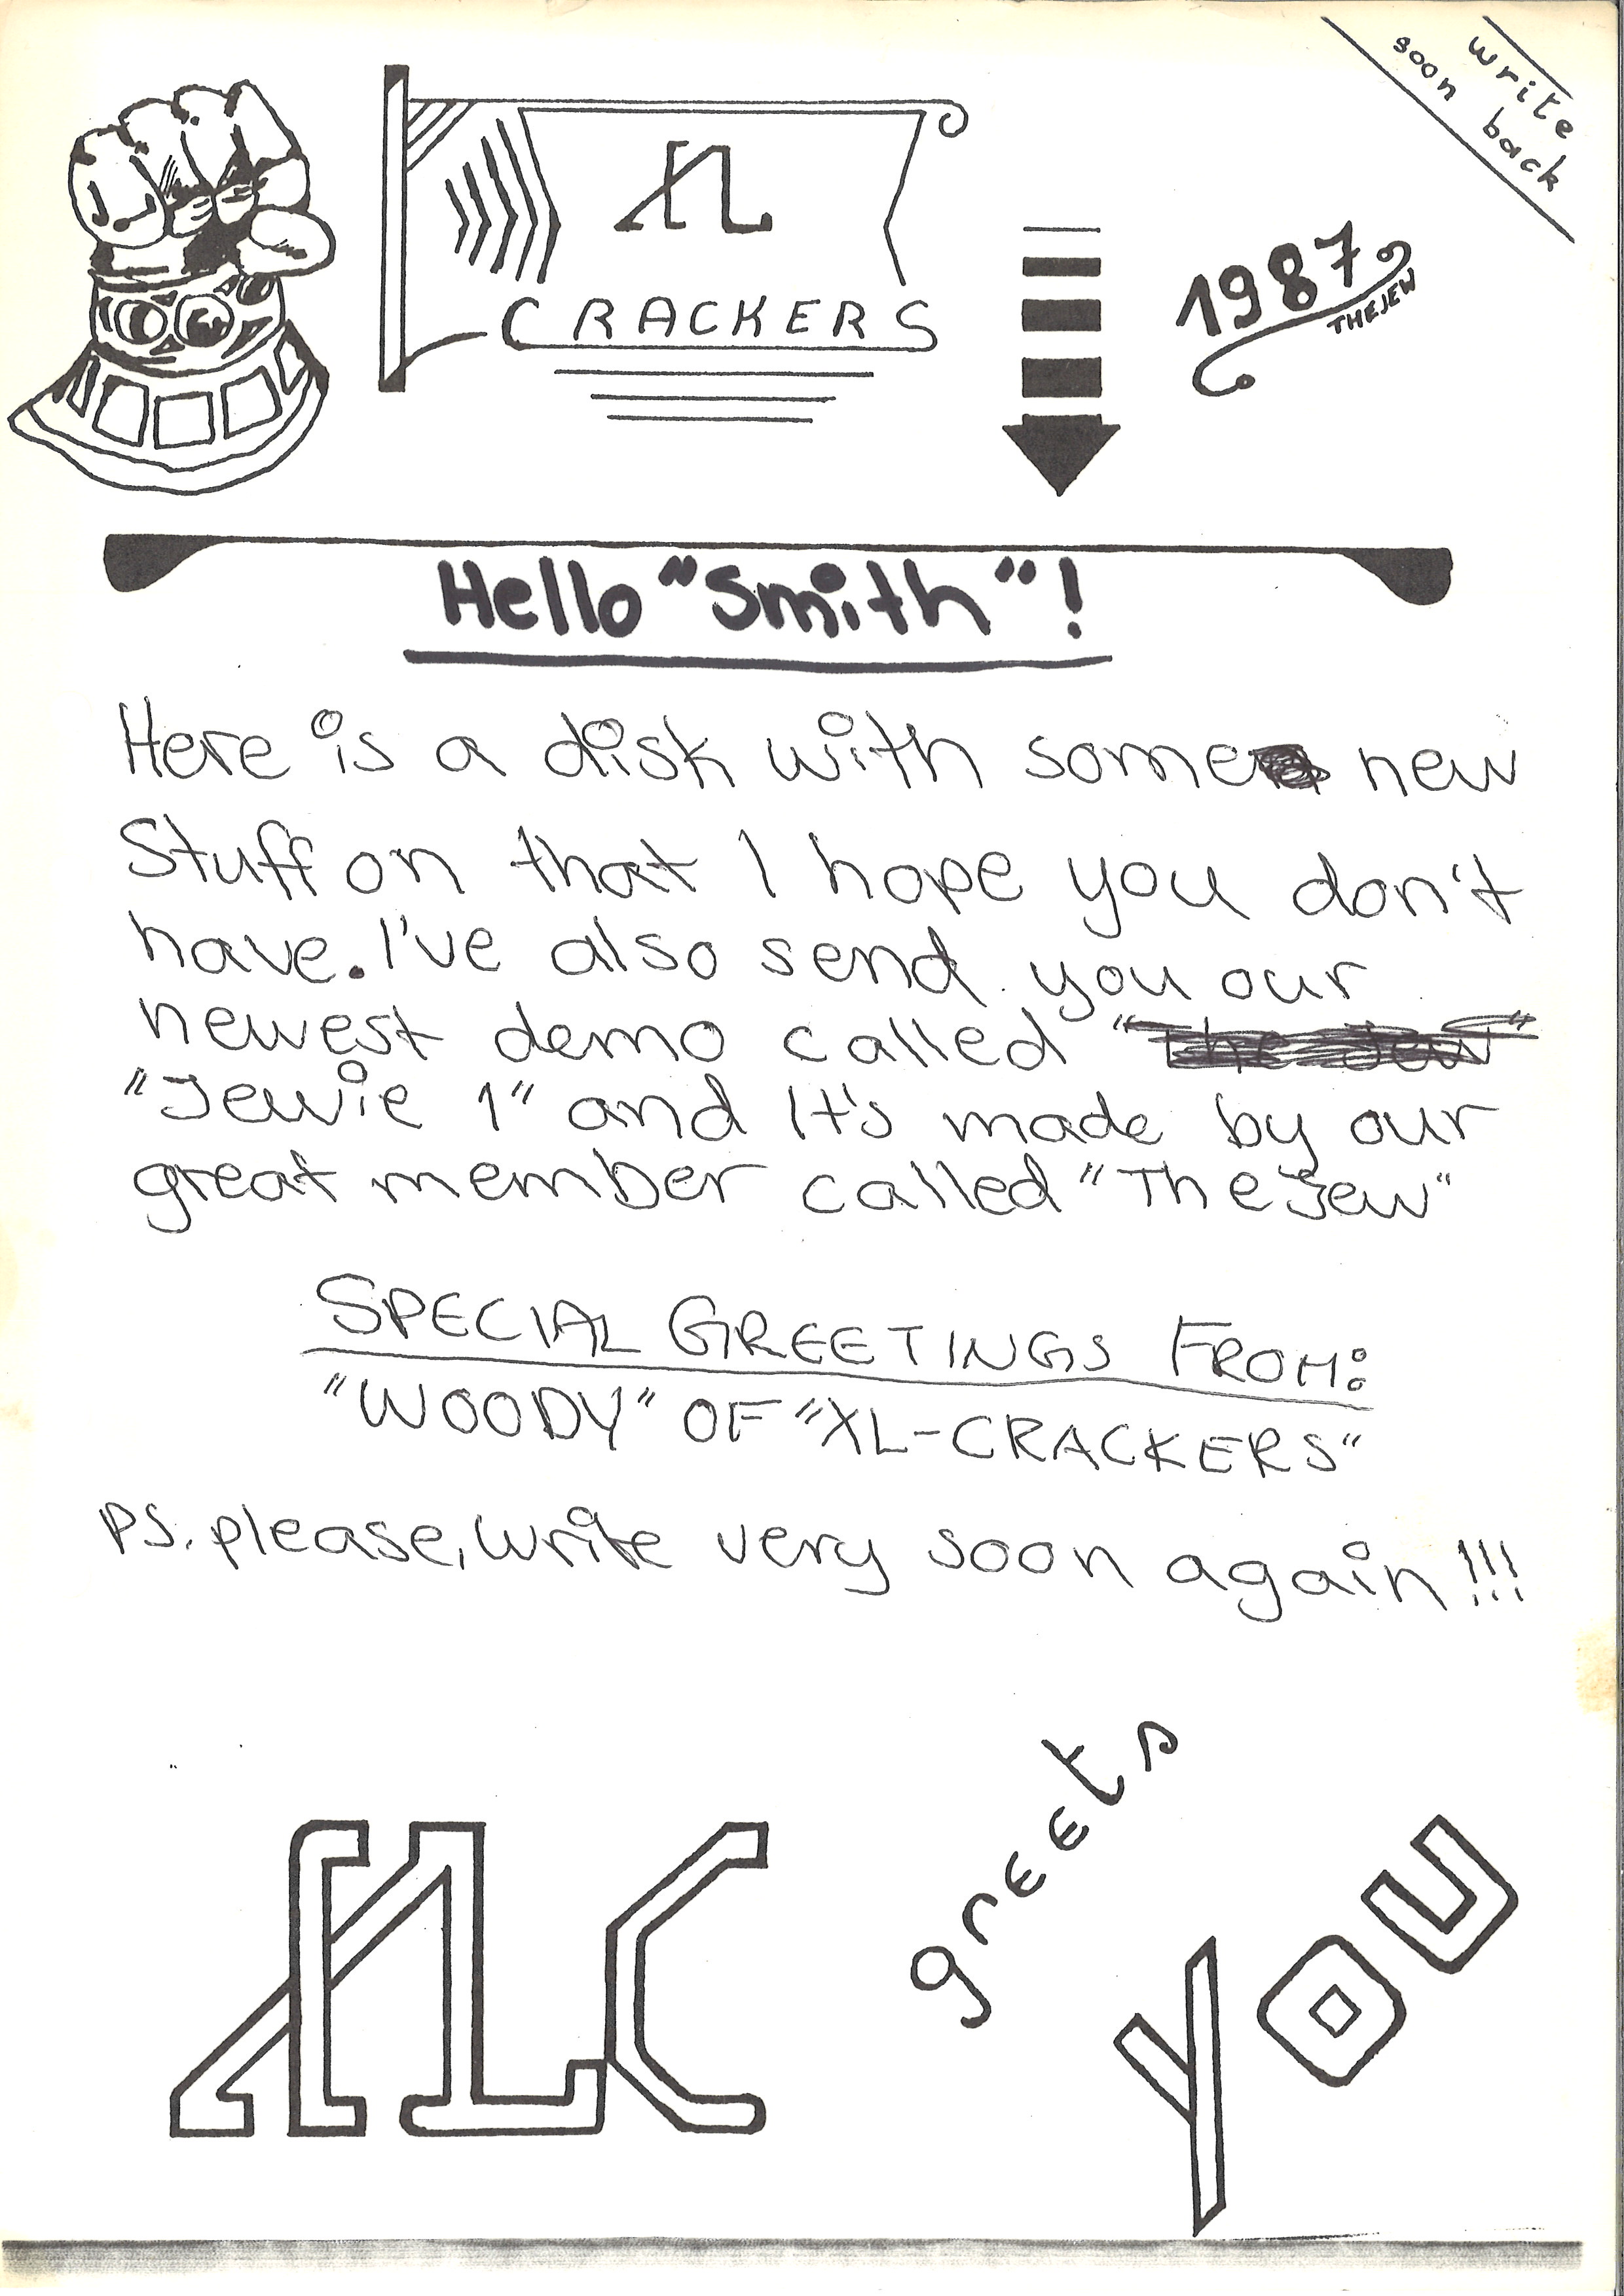 write
soon back
XL
CRACKERS
1987
THEJEW
Hello "Smith"!
Here is a disk with some new
Stuff on that I hope you don't
have. I've also send you our
newest demo called "The Jew"
"Jewie 1" and It's made by our
great member called "The Jew"
SPECIAL GREETINGS FROM:
"WOODY" OF "XL-CRACKERS"
PS. please, write very soon again!!!
XLC
greets
YOU